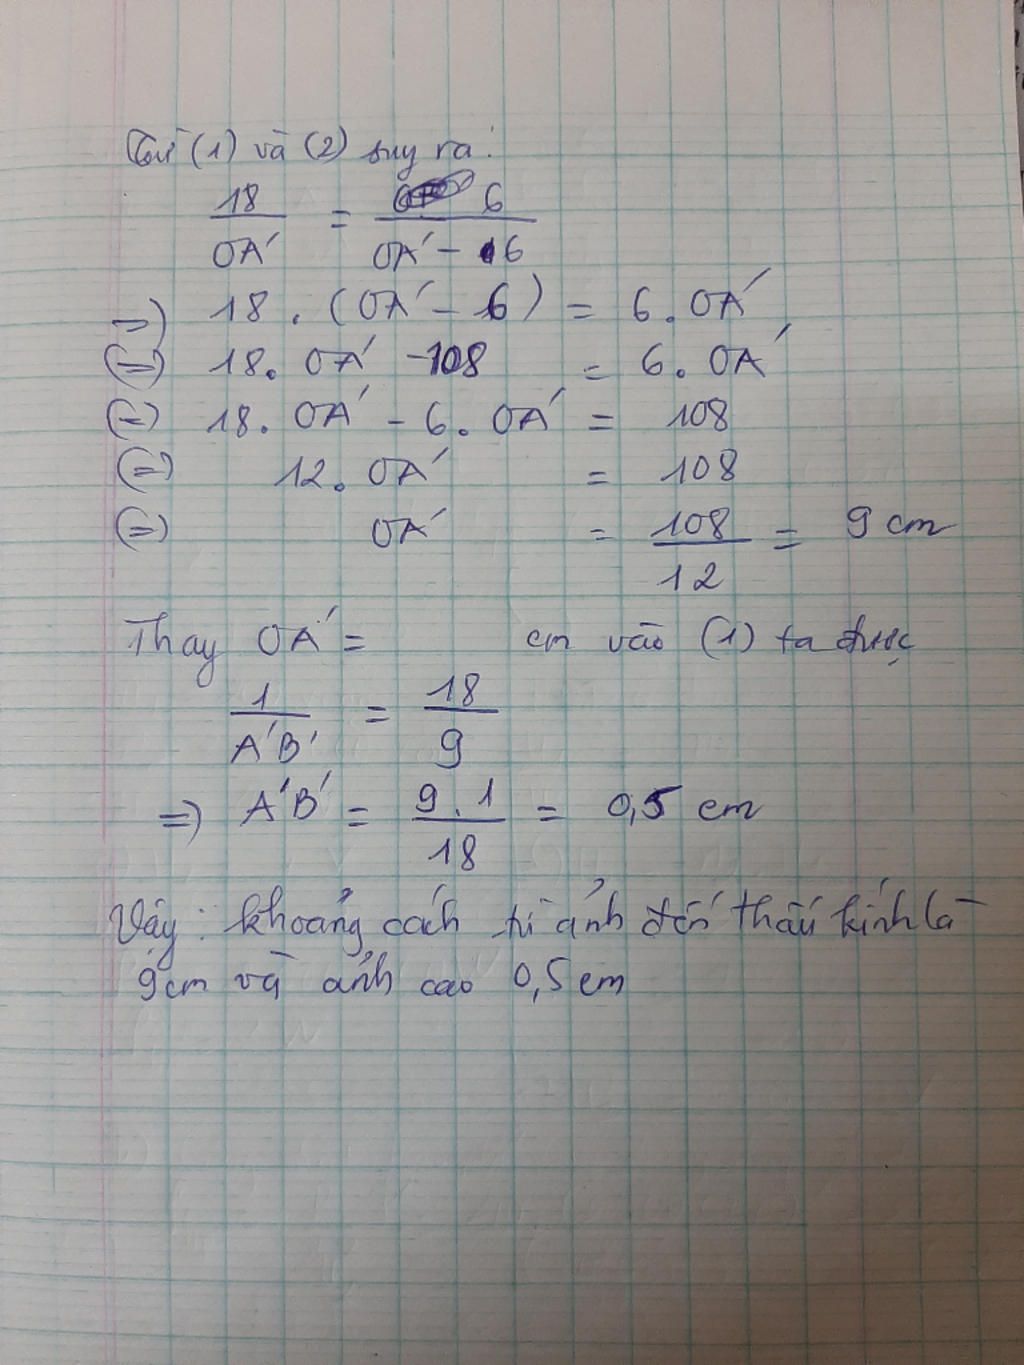 Từ (1) và (2) suy ra:
18 / OA' = 6 / OA' - 6
=) 18 . (OA' - 6) = 6 . OA'
(=) 18. OA' - 108 = 6. OA'
(=) 18. OA' - 6. OA' = 108
(=) 12. OA' = 108
(=) OA' = 108 / 12 = 9 cm
Thay OA' = cm vào (1) ta được
1 / A'B' = 18 / 9
=) A'B' = 9.1 / 18 = 0,5 cm
Vậy: khoảng cách từ ảnh đến thấu kính là
9cm và ảnh cao 0,5 cm